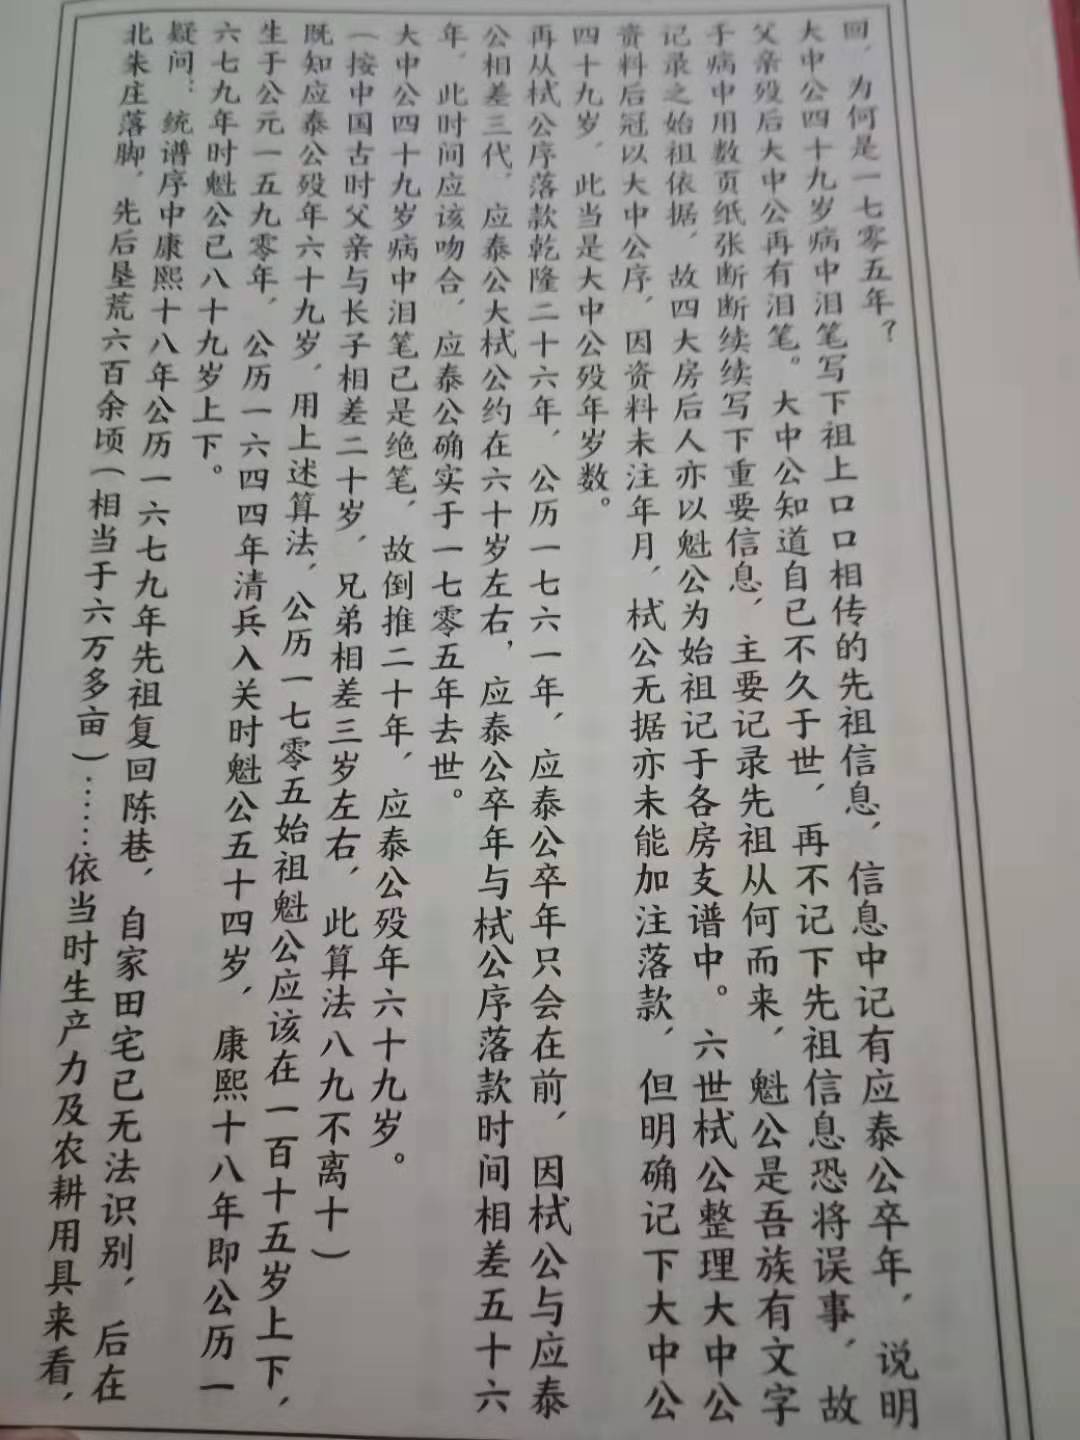 回，为何是一七零五年？
大中公四十九岁病中泪笔写下祖上口口相传的先祖信息，信息中记有应泰公卒年，说明
父亲殁后大中公再有泪笔。大中公知道自已不久于世，再不记下先祖信息恐将误事，故
于病中用数页纸张断断续续写下重要信息，主要记录先祖从何而来，魁公是吾族有文字
记录之始祖依据，故四大房后人亦以魁公为始祖记于各房支谱中。六世栻公整理大中公
资料后冠以大中公序，因资料未注年月，栻公无据亦未能加注落款，但明确记下大中公
四十九岁，此当是大中公殁年岁数。
再从栻公序落款乾隆二十六年，公历一七六一年，应泰公卒年只会在前，因栻公与应泰
公相差三代，应泰公大栻公约在六十岁左右，应泰公卒年与栻公序落款时间相差五十六
年，此时间应该吻合，应泰公确实于一七零五年去世。
大中公四十九岁病中泪笔已是绝笔，故倒推二十年，应泰公殁年六十九岁。
（按中国古时父亲与长子相差二十岁，兄弟相差三岁左右，此算法八九不离十）
既知应泰公殁年六十九岁，用上述算法，公历一七零五始祖魁公应该在一百十五岁上下，
生于公元一五九零年，公历一六四四年清兵入关时魁公五十四岁，康熙十八年即公历一
六七九年时魁公已八十九岁上下。
疑问：统谱序中康熙十八年公历一六七九年先祖复回陈巷，自家田宅已无法识别，后在
北朱庄落脚，先后垦荒六百余顷（相当于六万多亩）……依当时生产力及农耕用具来看，